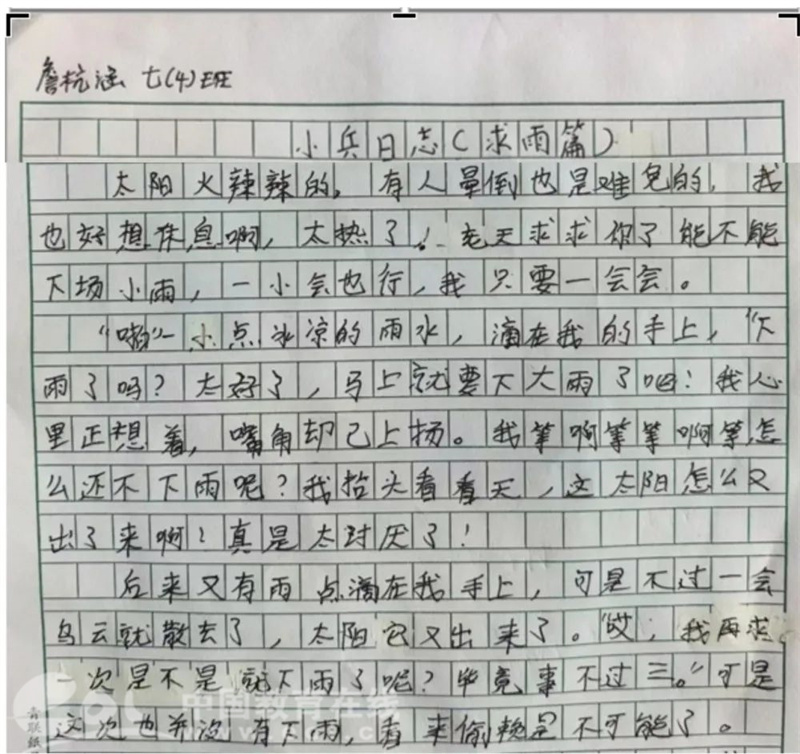 詹杭涵 七(4)班
小兵日志(求雨篇)
太阳火辣辣的，有人晕倒也是难免的，我
也好想休息啊，太热了！老天求求你了能不能
下场小雨，一小会也行，我只要一会会。
“啪”一小点冰凉的雨水，滴在我的手上，“下
雨了吗？太好了，马上就要下大雨了吧！我心
里正想着，嘴角却已上扬。我等啊等等啊等，怎
么还不下雨呢？我抬头看看天，这太阳怎么又
出了来啊！真是太讨厌了！
后来又有雨点滴在我手上，可是不过一会
乌云就散去了，太阳它又出来了。“哎，我再求
一次是不是就下雨了呢？毕竟事不过三。”可是
这次也并没有下雨，看来偷懒是不可能了。
中国教育在线